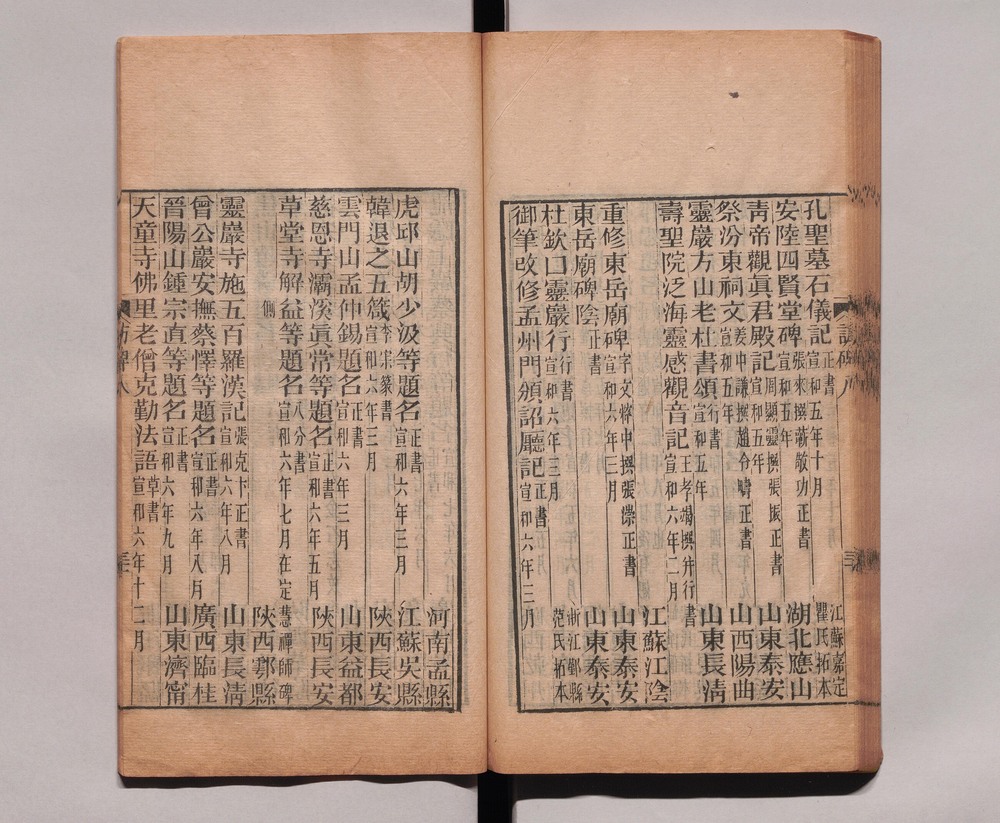 孔聖墓石儀記 正書 宣和五年十月 江蘇嘉定瞿氏拓本
安陸四賢堂碑 張耒撰 蔵敏功正書 宣和五年 湖北應山
靑帝觀眞君殿記 周顯靈撰張振正書 宣和五年 山東泰安
祭汾東祠文 姜仲謙撰趙令疇正書 宣和五年 山西陽曲
靈巖方山老杜書頌 行書 宣和五年 山東長清
壽聖院泛海靈感觀音記 王孝竭撰幷行書 宣和六年二月
江蘇江陰
重修東岳廟碑 宇文粹中撰張漴正書 宣和六年三月 山東泰安
東岳廟碑陰 正書 山東泰安
杜欽口靈巖行 行書 宣和六年三月 浙江鄞縣范氏拓本
御筆改修孟州門頒詔廳記 正書 宣和六年三月
河南孟縣
虎邱山胡少汲等題名 正書 宣和六年三月 江蘇吳縣
韓退之五箴 李宗篆書 宣和六年三月 陝西長安
雲門山孟仲錫題名 正書 宣和六年三月 山東益都
慈恩寺灞溪眞常等題名 正書 宣和六年五月 陝西長安
草堂寺解益等題名 八分書 宣和六年七月在定慧禪師碑
側 陝西鄠縣
靈巖寺施五百羅漢記 張克卞正書 宣和六年八月 山東長淸
曾公巖安撫蔡懌等題名 正書 宣和六年八月 廣西臨桂
晉陽山鍾宗直等題名 正書 宣和六年九月 山東濟甯
天童寺佛里老僧克勤法語 草書 宣和六年十二月